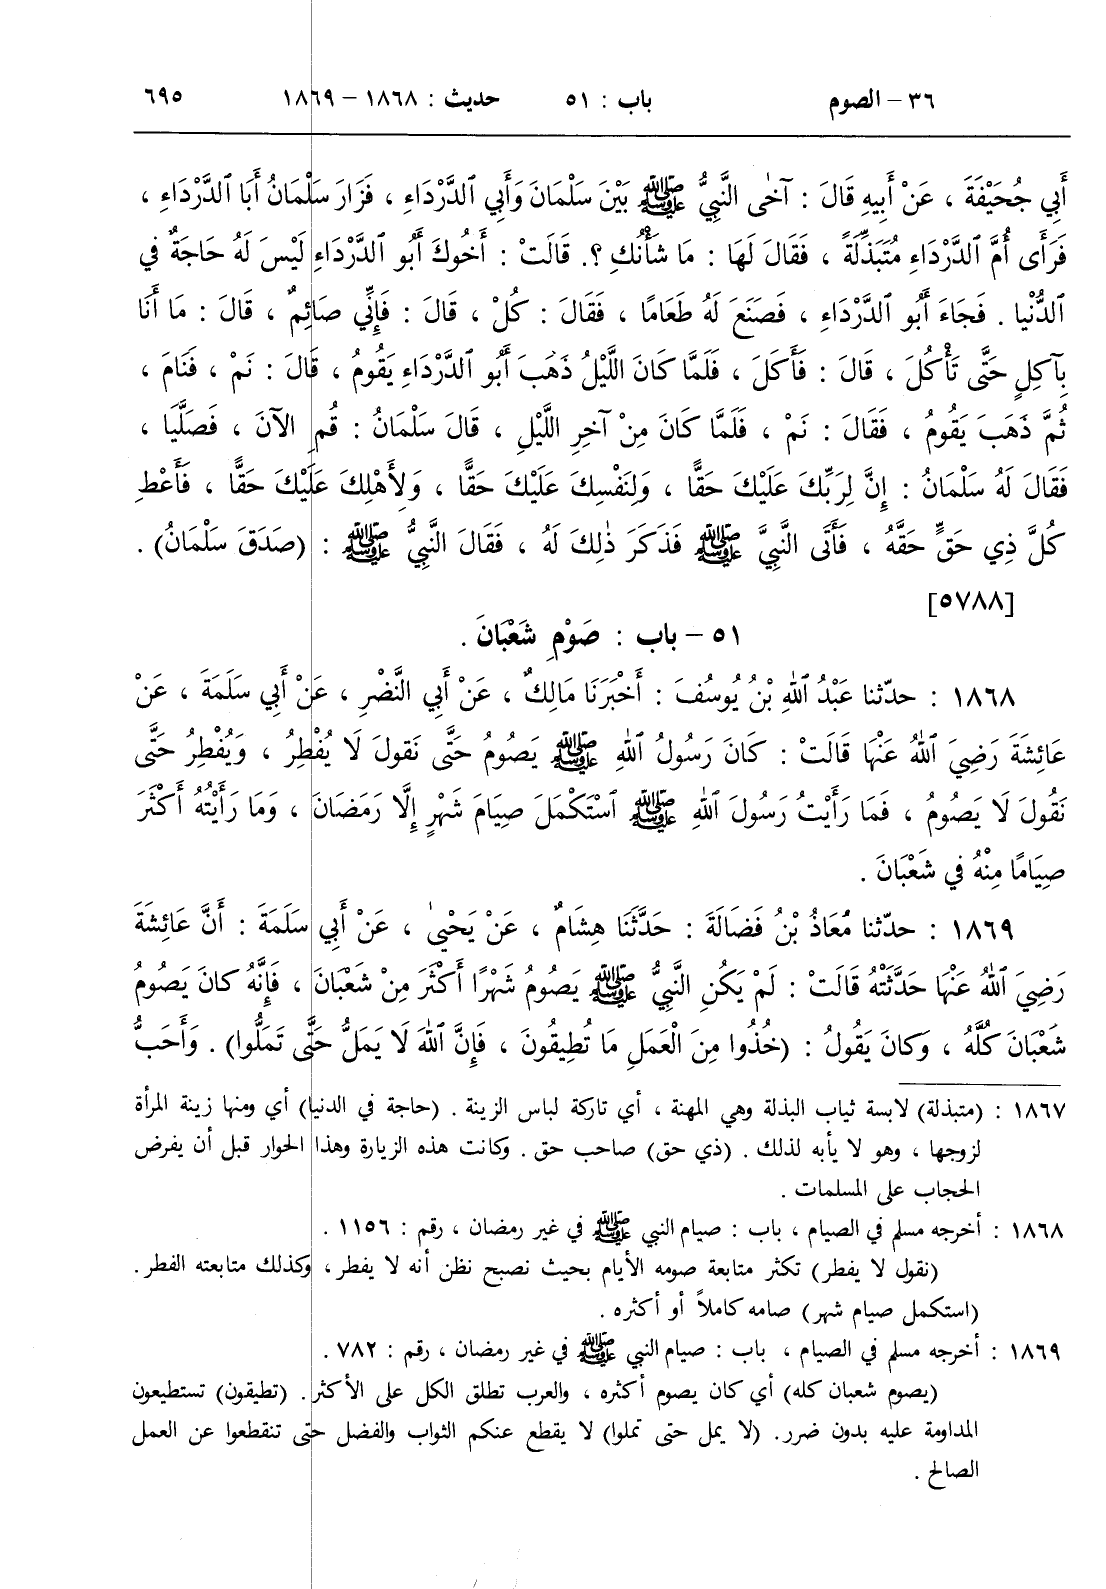 ٣٦ – الصوم باب : ٥١ حديث : ١٨٦٨ – ١٨٦٩ ٦٩٥
أَبِي جُحَيْفَةَ ، عَنْ أَبِيهِ قَالَ : آخَى النَّبِيُّ ﷺ بَيْنَ سَلْمَانَ وَأَبِي ٱلدَّرْدَاءِ ، فَزَارَ سَلْمَانُ أَبَا ٱلدَّرْدَاءِ ،
فَرَأَى أُمَّ ٱلدَّرْدَاءِ مُتَبَذِّلَةً ، فَقَالَ لَهَا : مَا شَأْنُكِ ؟. قَالَتْ : أَخُوكَ أَبُو ٱلدَّرْدَاءِ لَيْسَ لَهُ حَاجَةٌ فِي
ٱلدُّنْيا . فَجَاءَ أَبُو ٱلدَّرْدَاءِ ، فَصَنَعَ لَهُ طَعَامًا ، فَقَالَ : كُلْ ، قَالَ : فَإِنِّي صَائِمٌ ، قَالَ : مَا أَنَا
بِآكِلٍ حَتَّى تَأْكُلَ ، قَالَ : فَأَكَلَ ، فَلَمَّا كَانَ اللَّيْلُ ذَهَبَ أَبُو ٱلدَّرْدَاءِ يَقُومُ ، قَالَ : نَمْ ، فَنَامَ ،
ثُمَّ ذَهَبَ يَقُومُ ، فَقَالَ : نَمْ ، فَلَمَّا كَانَ مِنْ آخِرِ اللَّيْلِ ، قَالَ سَلْمَانُ : قُمِ الآنَ ، فَصَلَّيَا ،
فَقَالَ لَهُ سَلْمَانُ : إِنَّ لِرَبِّكَ عَلَيْكَ حَقًّا ، وَلِنَفْسِكَ عَلَيْكَ حَقًّا ، وَلِأَهْلِكَ عَلَيْكَ حَقًّا ، فَأَعْطِ
كُلَّ ذِي حَقٍّ حَقَّهُ ، فَأَتَى النَّبِيَّ ﷺ فَذَكَرَ ذٰلِكَ لَهُ ، فَقَالَ النَّبِيُّ ﷺ : (صَدَقَ سَلْمَانُ) .
[٥٧٨٨]
٥١ – باب : صَوْمِ شَعْبَانَ .
١٨٦٨ : حدّثنا عَبْدُ ٱللهِ بْنُ يُوسُفَ : أَخْبَرَنَا مَالِكٌ ، عَنْ أَبِي النَّضْرِ ، عَنْ أَبِي سَلَمَةَ ، عَنْ
عَائِشَةَ رَضِيَ ٱللهُ عَنْهَا قَالَتْ : كَانَ رَسُولُ ٱللهِ ﷺ يَصُومُ حَتَّى نَقولَ لَا يُفْطِرُ ، وَيُفْطِرُ حَتَّى
نَقُولَ لَا يَصُومُ ، فَمَا رَأَيْتُ رَسُولَ ٱللهِ ﷺ ٱسْتَكْمَلَ صِيَامَ شَهْرٍ إِلَّا رَمَضَانَ ، وَمَا رَأَيْتُهُ أَكْثَرَ
صِيَامًا مِنْهُ فِي شَعْبَانَ .
١٨٦٩ : حدّثنا مُعَاذُ بْنُ فَضَالَةَ : حَدَّثَنَا هِشَامٌ ، عَنْ يَحْيىٰ ، عَنْ أَبِي سَلَمَةَ : أَنَّ عَائِشَةَ
رَضِيَ ٱللهُ عَنْهَا حَدَّثَتْهُ قَالَتْ : لَمْ يَكُنِ النَّبِيُّ ﷺ يَصُومُ شَهْرًا أَكْثَرَ مِنْ شَعْبَانَ ، فَإِنَّهُ كانَ يَصُومُ
شَعْبَانَ كُلَّهُ ، وَكانَ يَقُولُ : (خُذُوا مِنَ الْعَمَلِ مَا تُطِيقُونَ ، فَإِنَّ ٱللهَ لَا يَمَلُّ حَتَّى تَمَلُّوا) . وَأَحَبُّ
١٨٦٧ : (متبذلة) لابسة ثياب البذلة وهي المهنة ، أي تاركة لباس الزينة . (حاجة في الدنيا) أي ومنها زينة المرأة
لزوجها ، وهو لا يأبه لذلك . (ذي حق) صاحب حق . وكانت هذه الزيارة وهذا الحوار قبل أن يفرض
الحجاب على المسلمات .
١٨٦٨ : أخرجه مسلم في الصيام ، باب : صيام النبي ﷺ في غير رمضان ، رقم : ١١٥٦ .
(نقول لا يفطر) تكثر متابعة صومه الأيام بحيث نصبح نظن أنه لا يفطر ، وكذلك متابعته الفطر .
(استكمل صيام شهر) صامه كاملاً أو أكثره .
١٨٦٩ : أخرجه مسلم في الصيام ، باب : صيام النبي ﷺ في غير رمضان ، رقم : ٧٨٢ .
(يصوم شعبان كله) أي كان يصوم أكثره ، والعرب تطلق الكل على الأكثر . (تطيقون) تستطيعون
المداومة عليه بدون ضرر . (لا يمل حتى تملوا) لا يقطع عنكم الثواب والفضل حتى تنقطعوا عن العمل
الصالح .